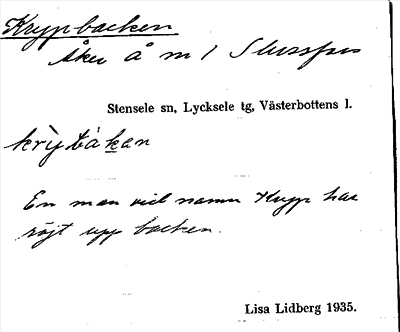 Krypbacken
Åker å m 1 Slussfors
Stensele sn, Lycksele tg, Västerbottens l.
krỳbákan
En man vid namn Krypp har
röjt upp backen.
Lisa Lidberg 1935.